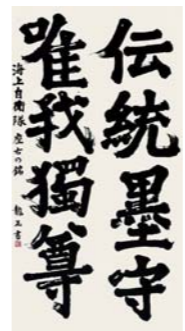 伝統墨守
唯我獨尊
海上自衛隊 座右の銘
龍玉書